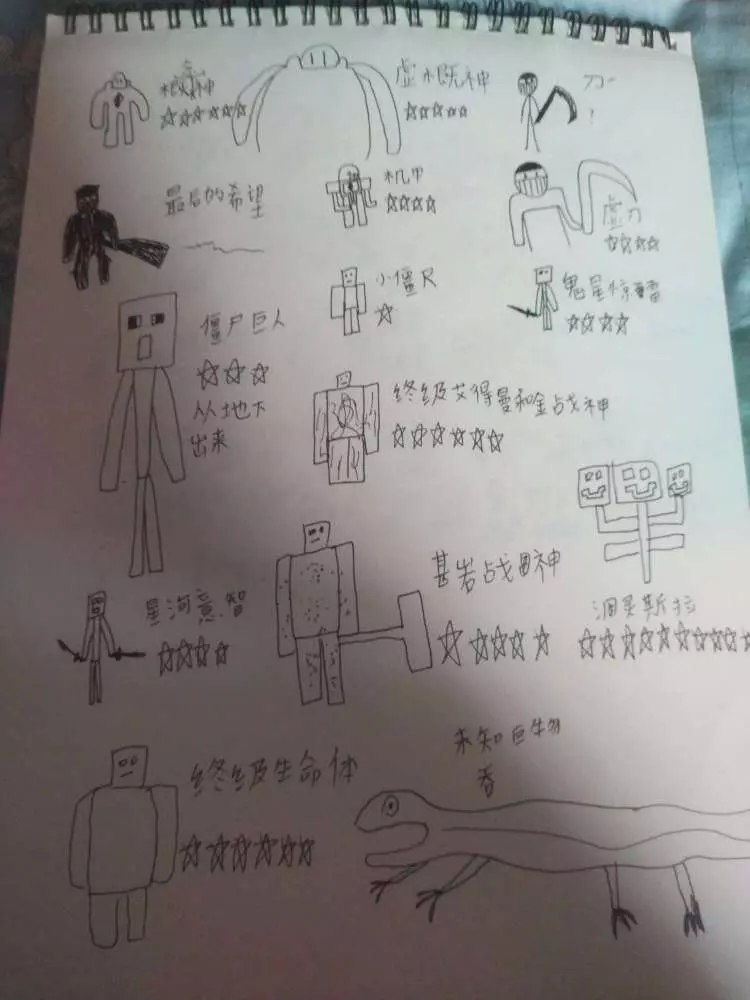 虚概神
刀
?
最后的希望
机甲
虚刀
小僵尸
鬼星惊雷
僵尸巨人
从地下
出来
终级艾得曼和金战神
星河意智
甚岩战神
斯拉
未知巨生物
终级生命体